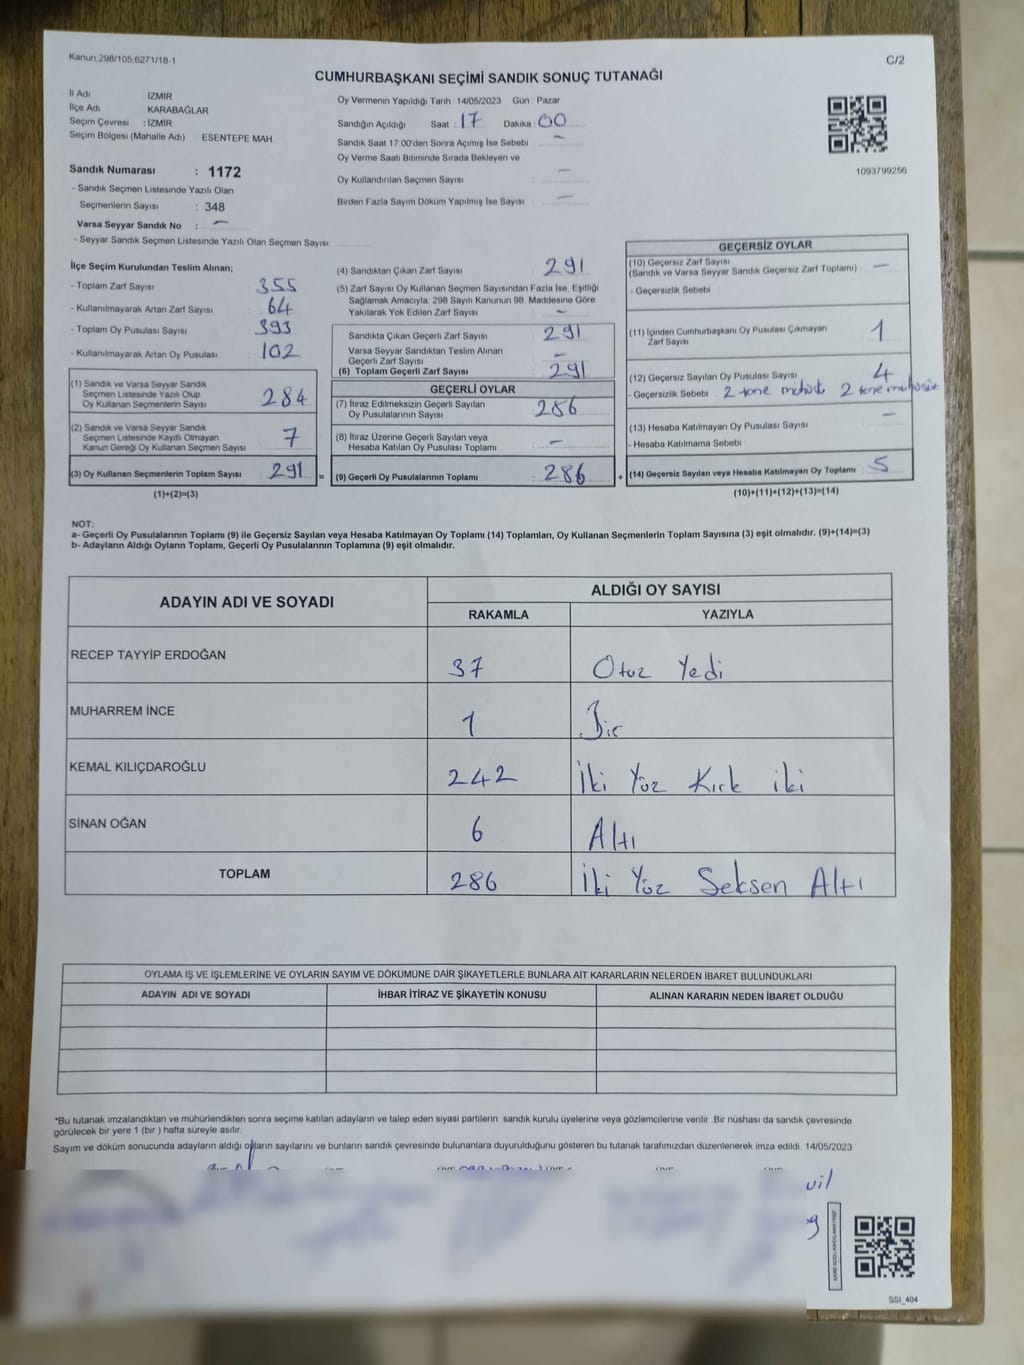 Kanun.298/105.6271/18-1
C/2
CUMHURBAŞKANI SEÇİMİ SANDIK SONUÇ TUTANAĞI
İl Adı İZMİR
İlçe Adı KARABAĞLAR
Seçim Çevresi : İZMİR
Seçim Bölgesi (Mahalle Adı) ESENTEPE MAH.
Sandık Numarası : 1172
- Sandık Seçmen Listesinde Yazılı Olan
Seçmenlerin Sayısı : 348
Varsa Seyyar Sandık No : -
- Seyyar Sandık Seçmen Listesinde Yazılı Olan Seçmen Sayısı
Oy Vermenin Yapıldığı Tarih 14/05/2023 Gün Pazar
Sandığın Açıldığı Saat : 17 Dakika 00
Sandık Saat 17:00'den Sonra Açımış İse Sebebi -
Oy Verme Saati Bitiminde Sırada Bekleyen ve
Oy Kullandırılan Seçmen Sayısı -
Birden Fazla Sayım Döküm Yapılmış İse Sayısı -
1093799256
İlçe Seçim Kurulundan Teslim Alınan;
- Toplam Zarf Sayısı : 355
- Kullanılmayarak Artan Zarf Sayısı : 64
- Toplam Oy Pusulası Sayısı : 393
- Kullanılmayarak Artan Oy Pusulası : 102
(1) Sandık ve Varsa Seyyar Sandık
Seçmen Listesinde Yazılı Olup
Oy Kullanan Seçmenlerin Sayısı : 284
(2) Sandık ve Varsa Seyyar Sandık
Seçmen Listesinde Kayıtlı Olmayan
Kanun Gereği Oy Kullanan Seçmen Sayısı : 7
(3) Oy Kullanan Seçmenlerin Toplam Sayısı : 291 =
(1)+(2)=(3)
(4) Sandıktan Çıkan Zarf Sayısı : 291
(5) Zarf Sayısı Oy Kullanan Seçmen Sayısından Fazla İse, Eşitliği
Sağlamak Amacıyla; 298 Sayılı Kanunun 98. Maddesine Göre
Yakılarak Yok Edilen Zarf Sayısı : -
Sandıkta Çıkan Geçerli Zarf Sayısı : 291
Varsa Seyyar Sandıktan Teslim Alınan
Geçerli Zarf Sayısı -
(6) Toplam Geçerli Zarf Sayısı : 291
GEÇERLİ OYLAR
(7) İtiraz Edilmeksizin Geçerli Sayılan
Oy Pusulalarının Sayısı : 286
(8) İtiraz Üzerine Geçerli Sayılan veya
Hesaba Katılan Oy Pusulası Toplamı : -
(9) Geçerli Oy Pusulalarının Toplamı : 286 +
GEÇERSİZ OYLAR
(10) Geçersiz Zarf Sayısı
(Sandık ve Varsa Seyyar Sandık Geçersiz Zarf Toplamı) : -
- Geçersizlik Sebebi
(11) İçinden Cumhurbaşkanı Oy Pusulası Çıkmayan
Zarf Sayısı 1
(12) Geçersiz Sayılan Oy Pusulası Sayısı : 4
- Geçersizlik Sebebi 2 tane 2 tane
(13) Hesaba Katılmayan Oy Pusulası Sayısı : -
- Hesaba Katılmama Sebebi
(14) Geçersiz Sayılan veya Hesaba Katılmayan Oy Toplamı : 5
(10)+(11)+(12)+(13)=(14)
NOT:
a- Geçerli Oy Pusulalarının Toplamı (9) ile Geçersiz Sayılan veya Hesaba Katılmayan Oy Toplamı (14) Toplamları, Oy Kullanan Seçmenlerin Toplam Sayısına (3) eşit olmalıdır. (9)+(14)=(3)
b- Adayların Aldığı Oyların Toplamı, Geçerli Oy Pusulalarının Toplamına (9) eşit olmalıdır.
ADAYIN ADI VE SOYADI
ALDIĞI OY SAYISI
RAKAMLA YAZIYLA
RECEP TAYYİP ERDOĞAN 37 Otuz Yedi
MUHARREM İNCE 1 Bir
KEMAL KILIÇDAROĞLU 242 İki Yüz Kırk iki
SİNAN OĞAN 6 Altı
TOPLAM 286 İki Yüz Seksen Altı
OYLAMA İŞ VE İŞLEMLERİNE VE OYLARIN SAYIM VE DÖKÜMÜNE DAİR ŞİKAYETLERLE BUNLARA AİT KARARLARIN NELERDEN İBARET BULUNDUKLARI
ADAYIN ADI VE SOYADI İHBAR İTİRAZ VE ŞİKAYETİN KONUSU ALINAN KARARIN NEDEN İBARET OLDUĞU
*Bu tutanak imzalandıktan ve mühürlendikten sonra seçime katılan adayların ve talep eden siyasi partilerin sandık kurulu üyelerine veya gözlemcilerine verilir. Bir nüshası da sandık çevresinde
görülecek bir yere 1 (bir ) hafta süreyle asılır.
Sayım ve döküm sonucunda adayların aldığı oyların sayılarını ve bunların sandık çevresinde bulunanlara duyurulduğunu gösteren bu tutanak tarafımızdan düzenlenerek imza edildi. 14/05/2023
SSI_404